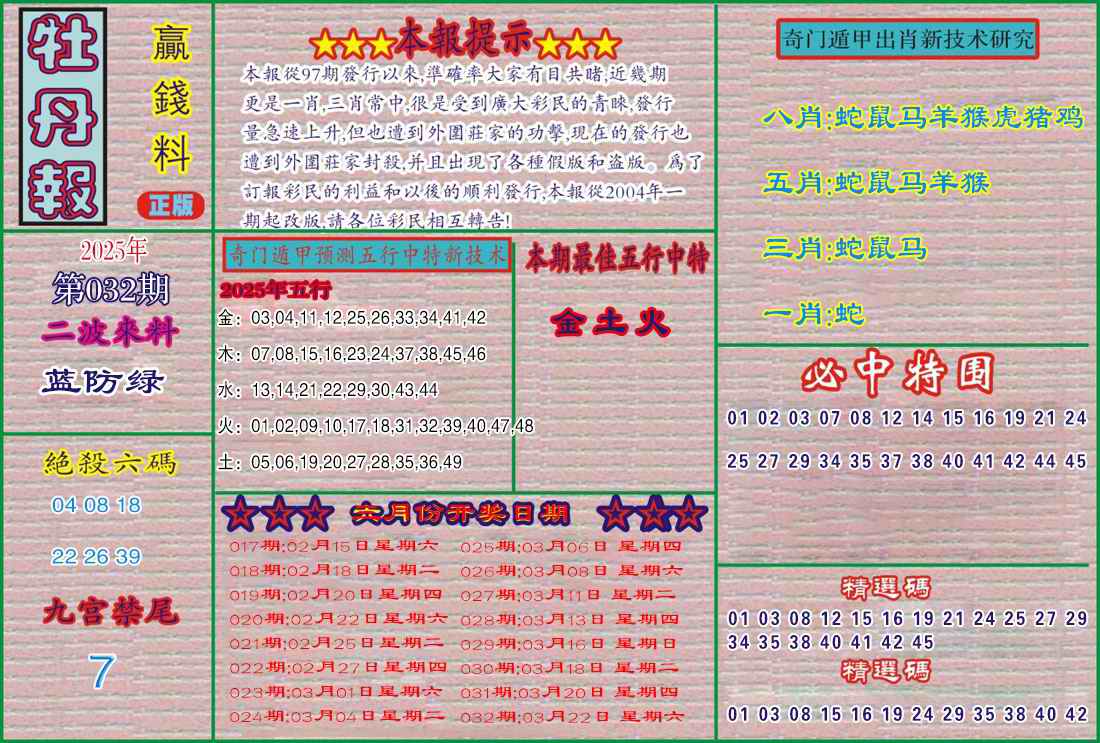 牡丹報
贏錢料
正版
★★★本報提示★★★
本報從97期發行以來,準確率大家有目共睹,近幾期
更是一肖,三肖常中,很是受到廣大彩民的青睞,發行
量急速上升,但也遭到外圍莊家的功擊,現在的發行也
遭到外圍莊家封殺,并且出現了各種假版和盗版。爲了
訂報彩民的利益和以後的順利發行,本報從2004年一
期起改版,請各位彩民相互轉告!
奇门遁甲出肖新技术研究
八肖:蛇鼠马羊猴虎猪鸡
五肖:蛇鼠马羊猴
三肖:蛇鼠马
一肖:蛇
2025年
第032期
二波來料
蓝防绿
奇门遁甲预测五行中特新技术
2025年五行
金：03,04,11,12,25,26,33,34,41,42
木：07,08,15,16,23,24,37,38,45,46
水：13,14,21,22,29,30,43,44
火：01,02,09,10,17,18,31,32,39,40,47,48
土：05,06,19,20,27,28,35,36,49
本期最佳五行中特
金土火
必中特围
01 02 03 07 08 12 14 15 16 19 21 24
25 27 29 34 35 37 38 40 41 42 44 45
絕殺六碼
04 08 18
22 26 39
九宫禁尾
7
☆☆☆ 六月份开奖日期 ☆☆☆
017期:02月15日星期六 025期:03月06日 星期四
018期:02月18日星期二 026期:03月08日 星期六
019期:02月20日星期四 027期:03月11日 星期二
020期:02月22日星期六 028期:03月13日 星期四
021期:02月25日星期二 029期:03月16日 星期日
022期:02月27日星期四 030期:03月18日 星期二
023期:03月01日星期六 031期:03月20日 星期四
024期:03月04日星期二 032期:03月22日 星期六
精選碼
01 03 08 12 15 16 19 21 24 25 27 29
34 35 38 40 41 42 45
精選碼
01 03 08 15 16 19 24 29 35 38 40 42